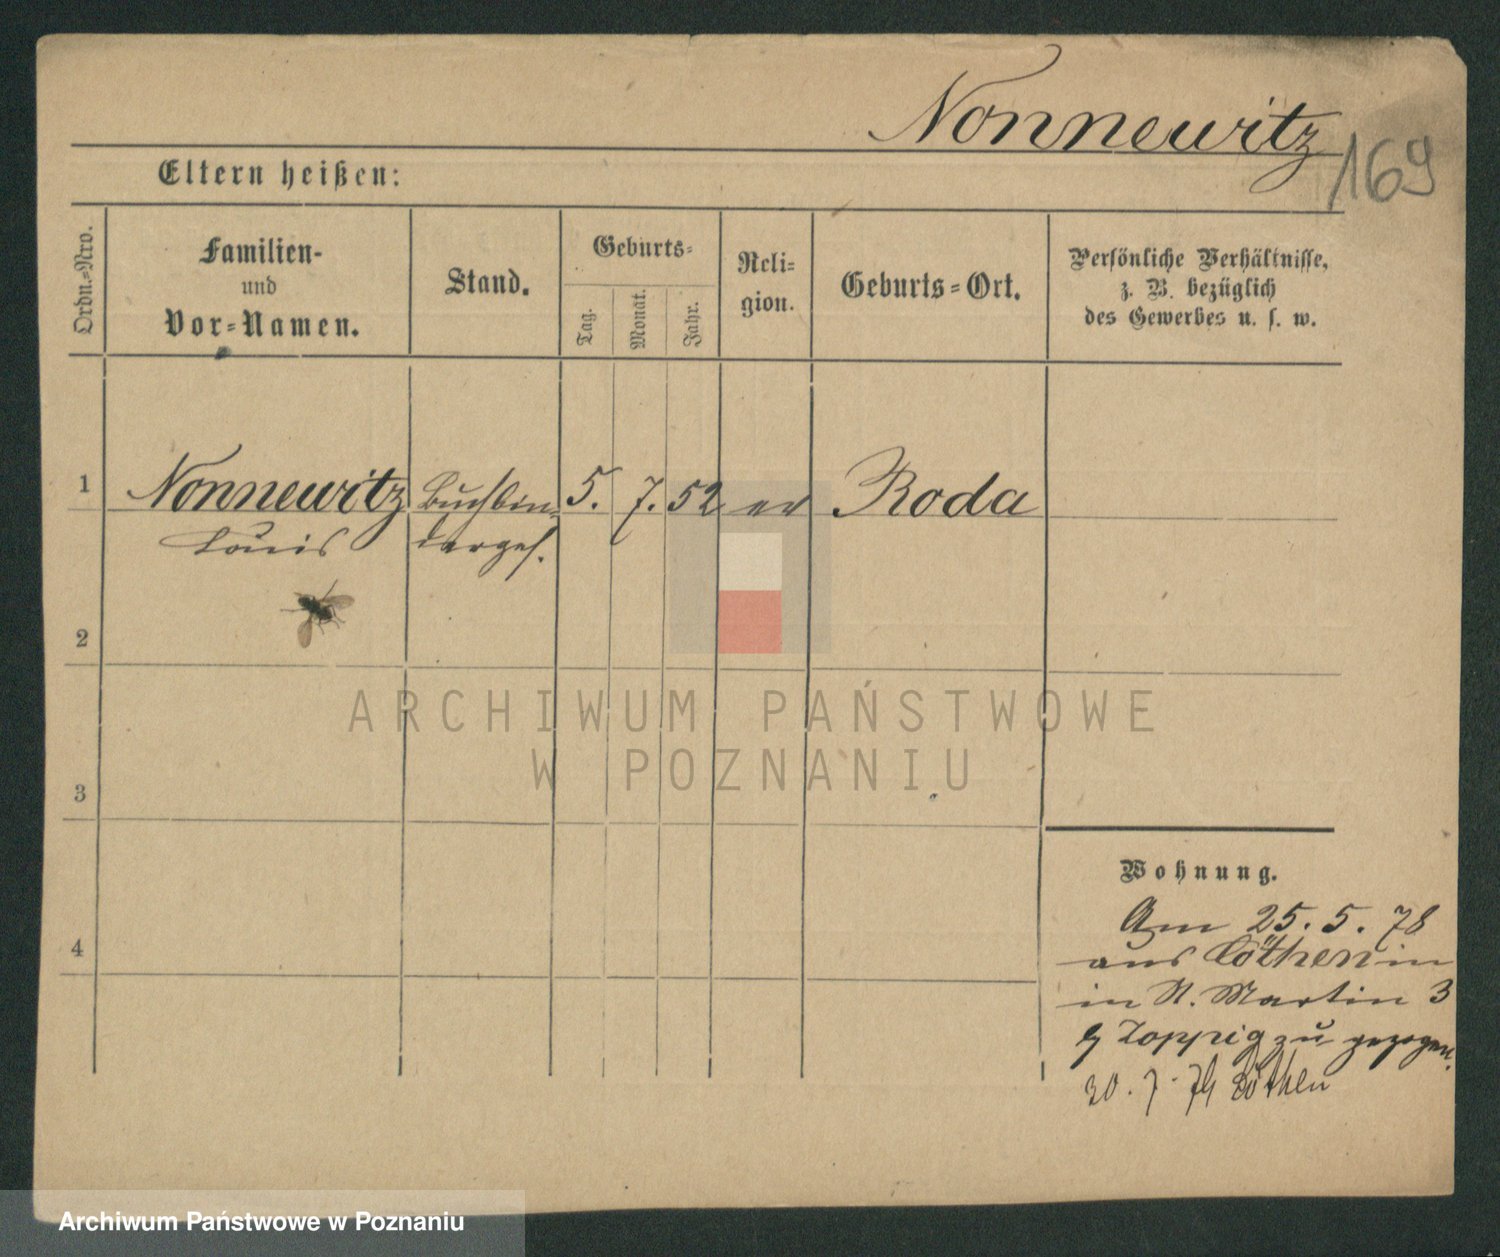 Nonnewitz
169
Eltern heißen:
Ordn.-Nro.
Familien-
und
Vor-Namen.
Stand.
Geburts-
Tag.
Monat.
Jahr.
Reli-
gion.
Geburts-Ort.
Persönliche Verhältnisse,
z. B. bezüglich
des Gewerbes u. s. w.
1
Nonnewitz Buchbin- 5. 7. 52 ev Roda
Louis dergeh.
2
ARCHIWUM PAŃSTWOWE
W POZNANIU
3
Wohnung.
4
Am 25. 5. 78
aus Cöthen in
in St. Martin 3
Zoppig zu gezogen.
30. 7. Cöthen
Archiwum Państwowe w Poznaniu